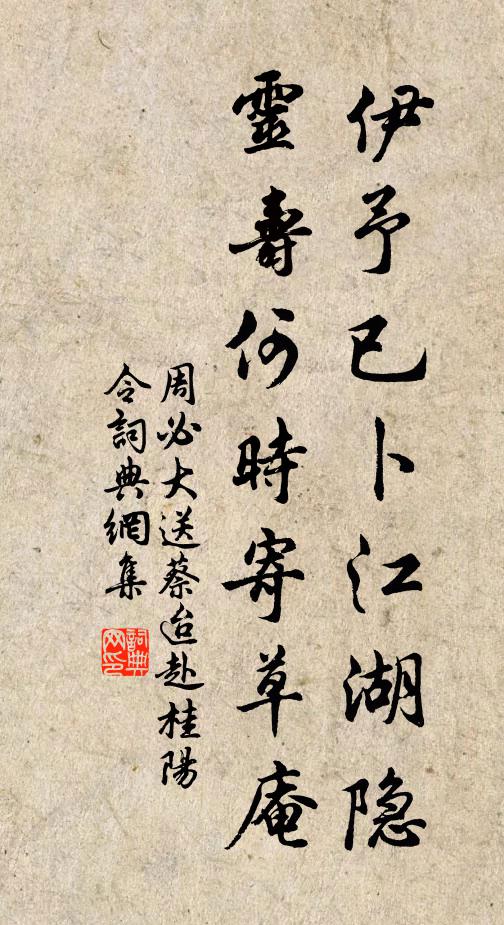 伊予已卜江湖隐
靈壽何時寄草庵
周必大送蔡迨赴桂陽
令詞典網集
詞典
网印